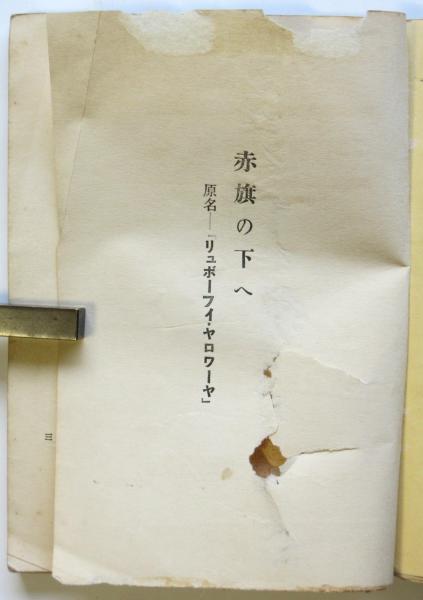 赤旗の下へ
原名―『リュボーフイ・ヤロワーヤ』
三